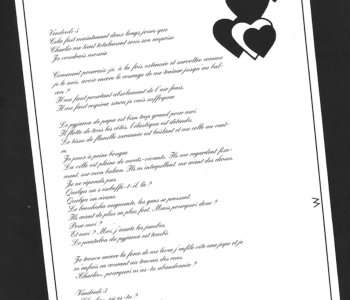 Vendredi 3
Cela fait maintenant deux longs jours que
Charlie me tient totalement sous son emprise.
Je voudrais mourir
Comment pourrais-je, à la fois exténuée et survoltée comme
je le suis, avoir encore le courage de me traîner jusqu'au bal-
con ?
Il me faut pourtant absolument de l'air frais.
Il me faut respirer sinon je vais suffoquer
Le pyjama de papa est bien trop grand pour moi.
Il flotte de tous les côtés, l'élastique est détendu.
Le tissu de flanelle surannée est baissant et me colle au vent-
re.
Je peux à peine bouger
La ville est pleine de morts-vivants. Ils me regardent fixe-
ment, sur mon balcon. Ils m'interpellent, me crient des choses.
Je ne réponds pas.
Quelqu'un s'esclaffe-t-il là ?
Quelqu'un ricane.
Le brouhaha augmente, les gens se pressent.
Ils rient de plus en plus fort. Mais pourquoi donc ?
Pour moi ?
Et moi ? Moi, j'écarte les jambes.
Le pantalon du pyjama est tombé.
Je trouve encore la force de me lever, j'enfile vite une jupe et je
m'enfuis en courant au travers des rues.
«Charlie», pourquoi m'as-tu abandonnée ?
Vendredi 3